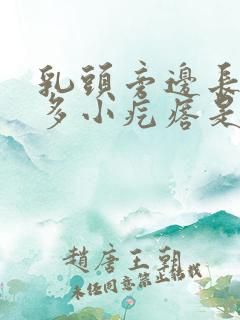 乳頭旁邊長
多小疙瘩是
趙唐王朝
未经同意禁止转载